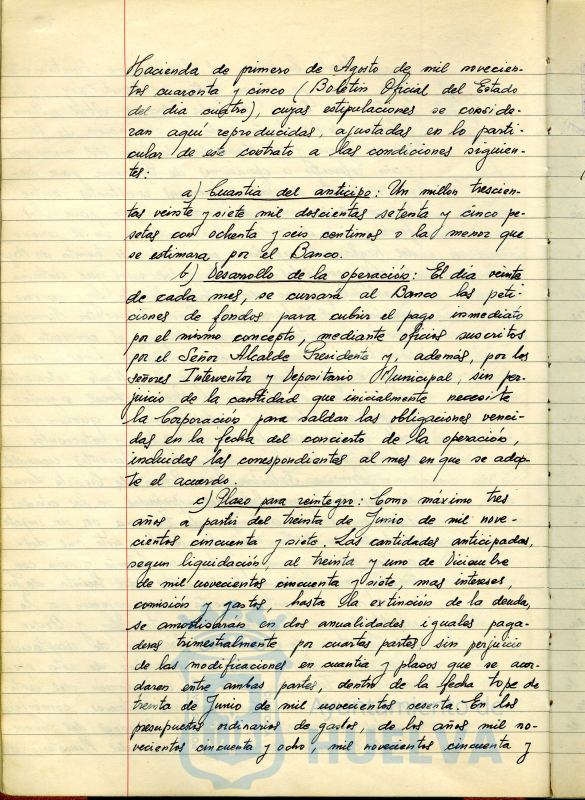 Hacienda de primero de Agosto de mil novecien-
tos cuarenta y cinco (Boletin Oficial del Estado
del dia cuatro), cuyas estipulaciones se conside-
ran aqui reproducidas, ajustadas en lo parti-
cular de este contrato a las condiciones siguien-
tes:
a) Cuantia del anticipo: Un millon trescien-
tas veinte y siete mil doscientas setenta y cinco pe-
setas con ochenta y seis centimos o la menor que
se estimara, por el Banco.
b) Desarrollo de la operación: El dia veinte
de cada mes, se cursará al Banco las peti-
ciones de fondos para cubrir el pago inmediato
por el mismo concepto, mediante oficios suscritos
por el Señor Alcalde Presidente y, además, por los
señores Interventor y Depositario Municipal, sin per-
juicio de la cantidad que inicialmente necesite
la Corporación para saldar las obligaciones venci-
das en la fecha del concierto de la operación,
incluidas las correspondientes al mes en que se adop-
te el acuerdo.
c) Plazo para reintegro: Como máximo tres
años a partir del treinta de Junio de mil nove-
cientos cincuenta y siete. Las cantidades anticipadas,
segun liquidación, al treinta y uno de Diciembre
de mil novecientos cincuenta y siete, mas intereses,
comisión y gastos, hasta la extinción de la deuda,
se amortisarán en dos anualidades iguales paga-
deras trimestralmente por cuartas partes sin perjuicio
de las modificaciones en cuantia y plasos que se acor-
daren entre ambas partes, dentro de la fecha tope de
treinta de Junio de mil novecientos sesenta. En los
presupuestos ordinarios de gastos, de los años mil no-
vecientos cincuenta y ocho, mil novecientos cincuenta y
HUELVA